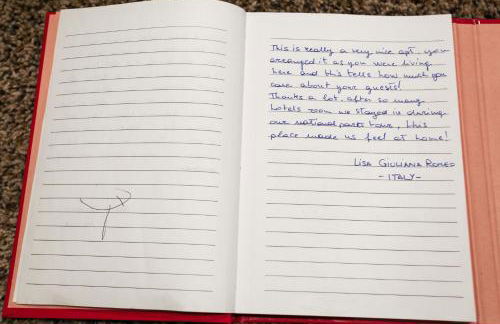 This is really a very nice apt. you
arranged it as you were living
here and this tells how much you
care about your guests!
Thanks a lot. after so many
hotels room we stayed in during
our national parks tour, this
place made us feel at home!
LISA GIULIANA ROMEO
- ITALY -